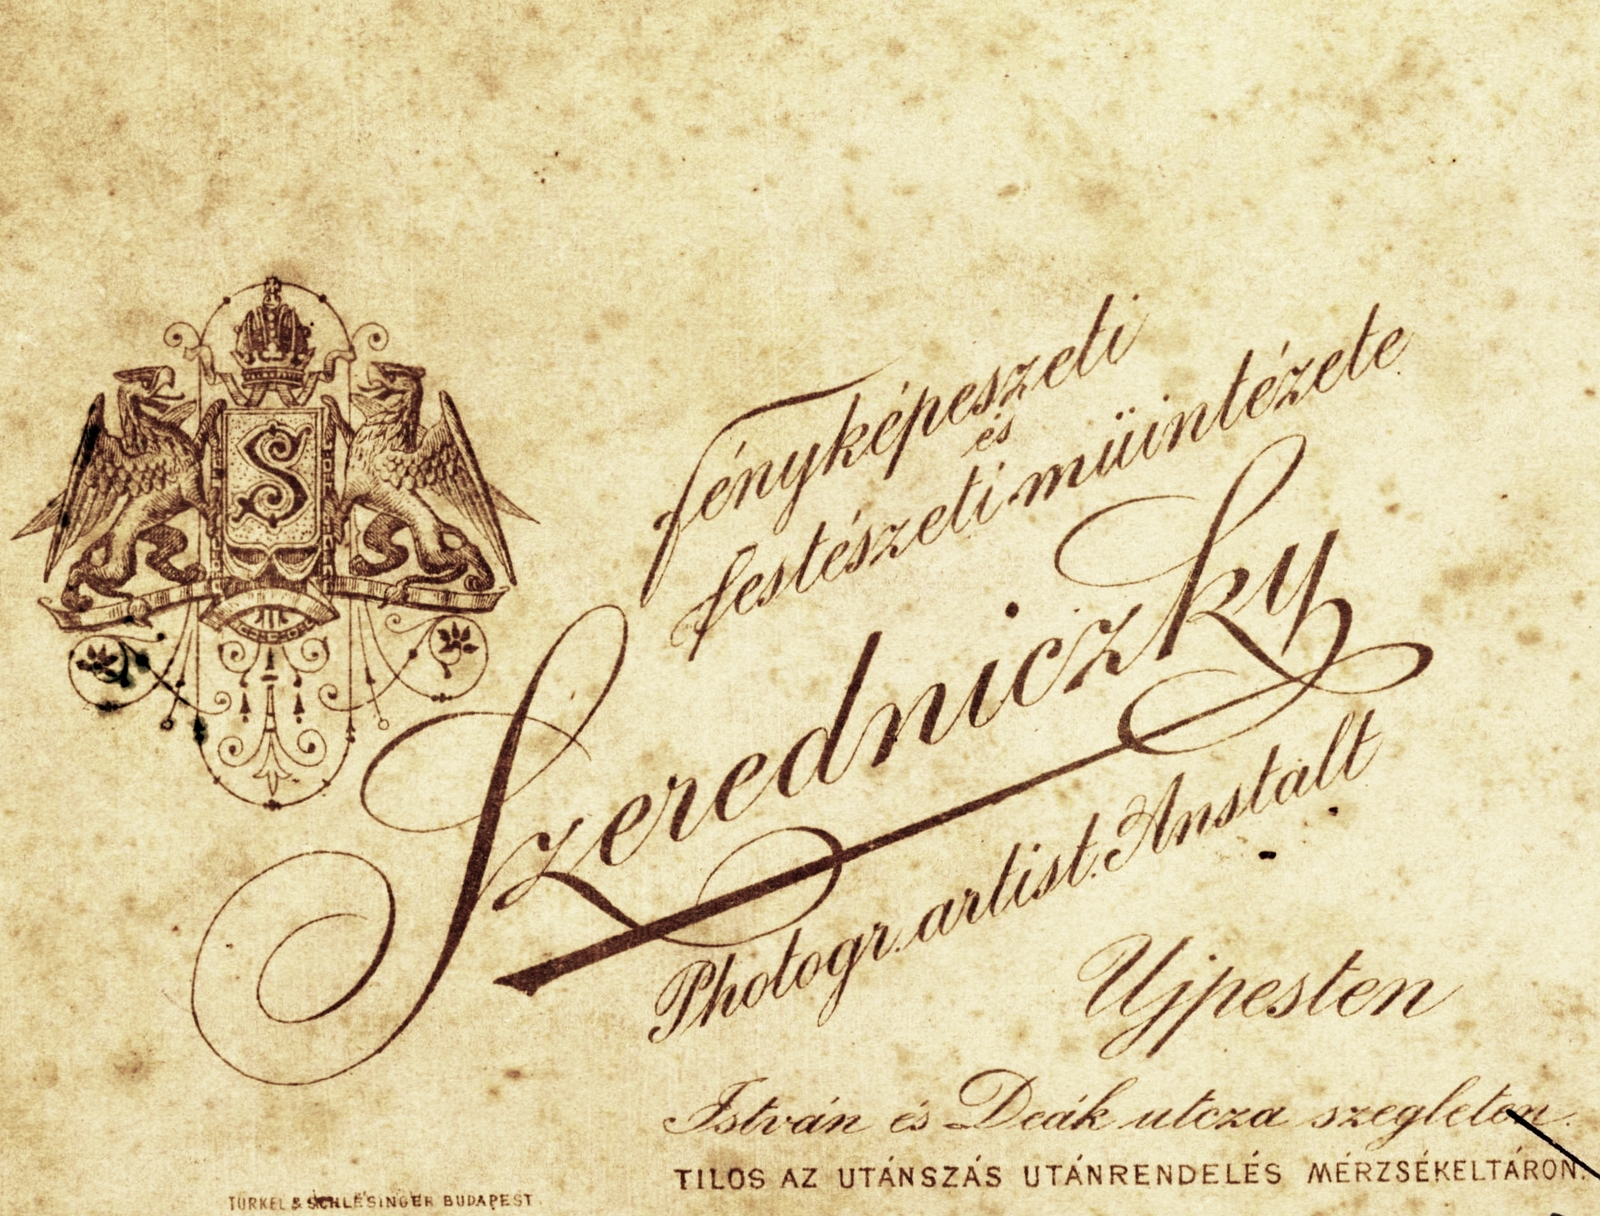 S
Fényképeszeti
és
festészeti műintézete
Szeredniczky
Photogr. artist. Anstalt
Ujpesten
István és Deák utcza szegleten.
TILOS AZ UTÁNSZÁS UTÁNRENDELÉS MÉRZSÉKELTÁRON.
TÜRKEL & SCHLESINGER BUDAPEST.